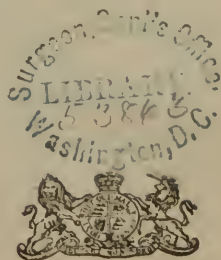 Surgeon Genl's Office,
LIBRARY.
Washington, D.C.